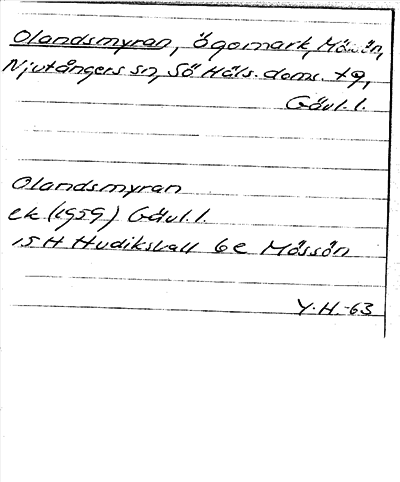 Olandsmyran, ägomark, Mössön,
Njutångers sn, Sö Häls. doms. tg,
Gävl. l.
Olandsmyran
ek (1959) Gävl. l.
15 H Hudiksvall 6 e Mössön
Y. H. -63